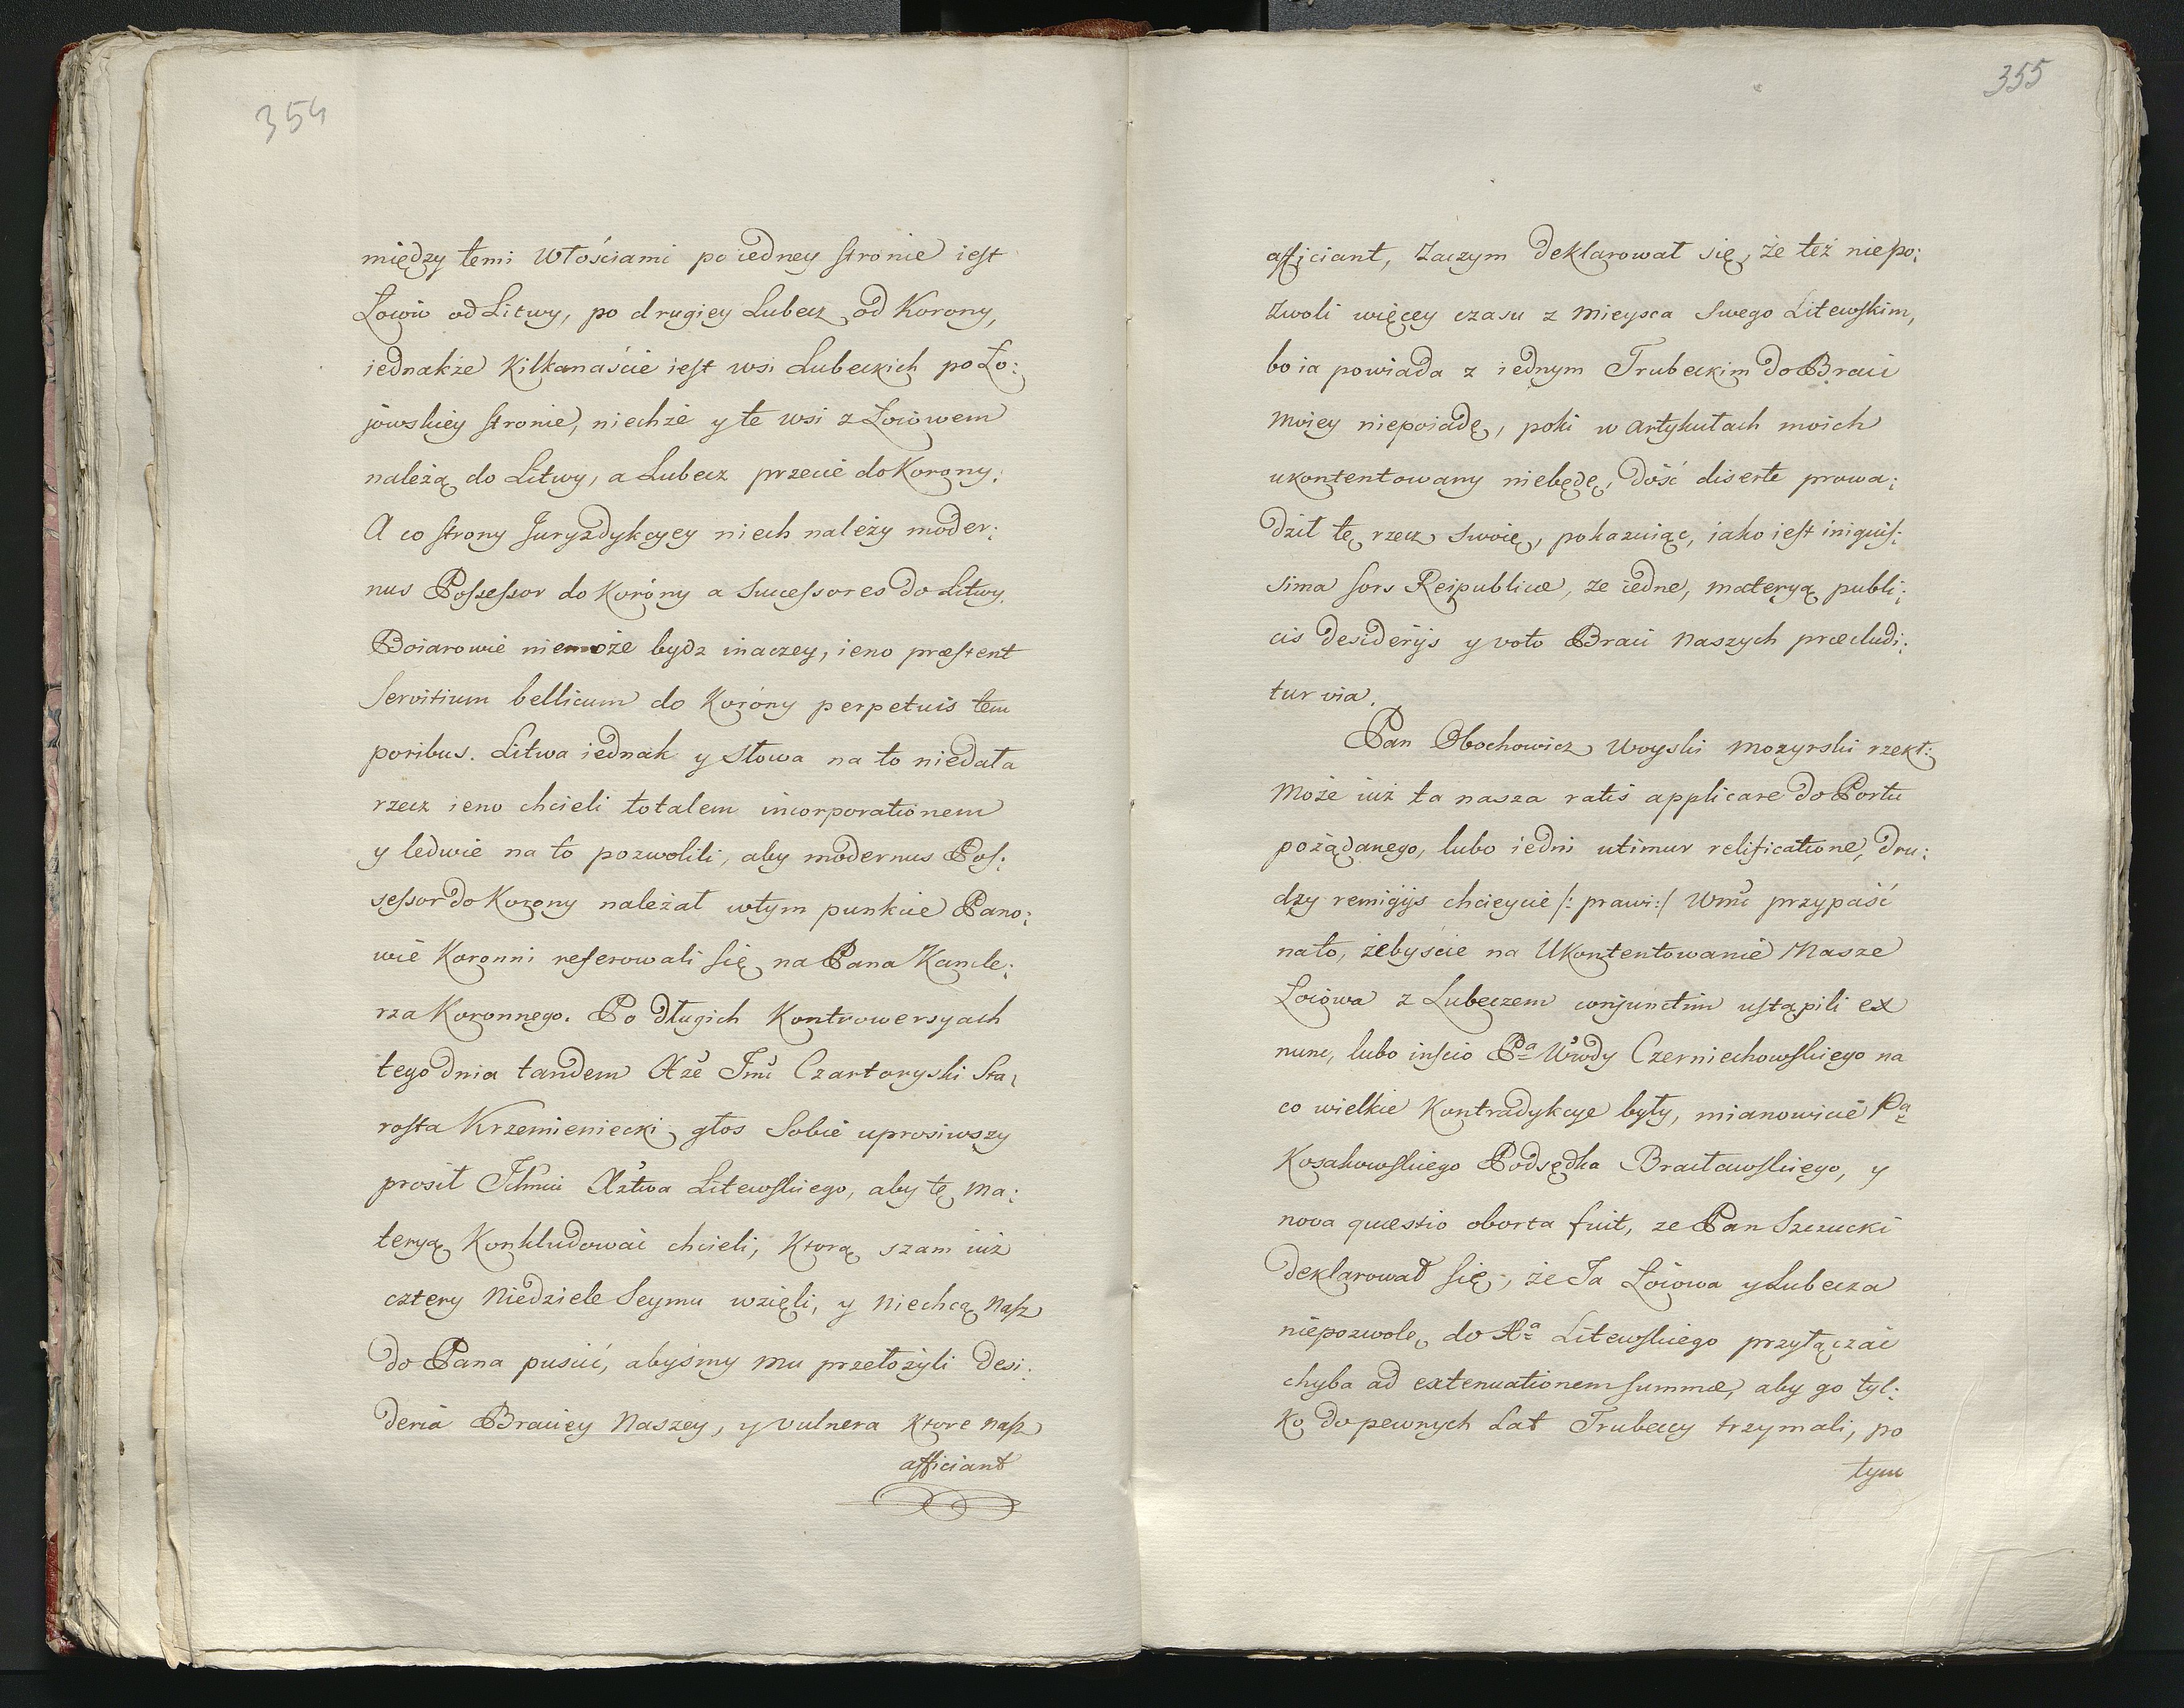 354
między temi Włościami po iedney stronie iest
Łoiów od Litwy, po drugiey Lubecz od Korony,
iednakże kilkanaście iest wsi Lubeckich po Ło:
jowskiey stronie, niechże y te wsi z Łoiowem
należą do Litwy, a Lubecz przecie do Korony.
A co strony Juryzdykcyey niech należy moder:
nus Possessor do Korony a Successores do Litwy.
Boiarowie niemoże bydz inaczey, ieno præstent
Servitium bellicum do Korony perpetuis tem
poribus. Litwa iednak y Słowa na to niedała
rzecz ieno chcieli totalem incorporationem
y ledwie na to pozwolili, aby modernus Pos:
sessor do Korony należał wtym punkcie Pano:
wie Koronni referowali się na Pana Kancle:
rza Koronnego. Po długich Kontrowersyach
tego dnia tandem Xże Jmć Czartoryski Sta:
rosta Krzemieniecki głos Sobie uprosiwszy
prosił Ichmci Xztwa Litewskiego, aby tę ma:
teryą Konkludować chcieli, Ktorą szam iuż
cztery Niedziele Seymu wzięli, y niechcą nasz
do Pana puscić, abyśmy mu przełożyli desi:
deria Braciey Naszey, y vulnera Ktore nasz
afficiant
355
afficiant, Zaczym deklarował się, że też niepo:
zwoli więcey czasu z Mieysca Swego Litewskim,
bo ia powiada z iednym Trubeckim do Braci
Moiey niepoiadę, poki w artykułach moich
ukontentowany niebędę, dość diserte prowa:
dził tę rzecz Swoię, pokazuiąc, iako iest iniquis:
sima sors Reipublicæ, ze iedne, materyą publi:
cis desiderijs y voto Braci Naszych præcludi:
tur via.
Pan Obochowicz Woyski Mozyrski rzekł:
Może iuż ta nasza ratis applicare do Portu
pożądanego, lubo iedni utimur velificatione, dru:
dzy remigijs chcieycie /: prawi :/ Wmć przypaść
nato, żebyście na Ukontentowanie Nasze
Łoiowa z Lubeczem conjunctim ustąpili ex
nunc, lubo inscio Pa Wwdy Czerniechowskiego na
co wielkie Kontradykcye były, mianowicie Pa
Kosakowskiego Podsędka Bracławskiego, y
nova quæstio oborta fuit, ze Pan Szczucki
deklarował się, że Ja Łoiowa y Lubecza
niepozwolę do Xa Litewskiego przyłączać
chyba ad extenuationem summæ, aby go tyl:
ko do pewnych Lat Trubeccy trzymali, po
tym